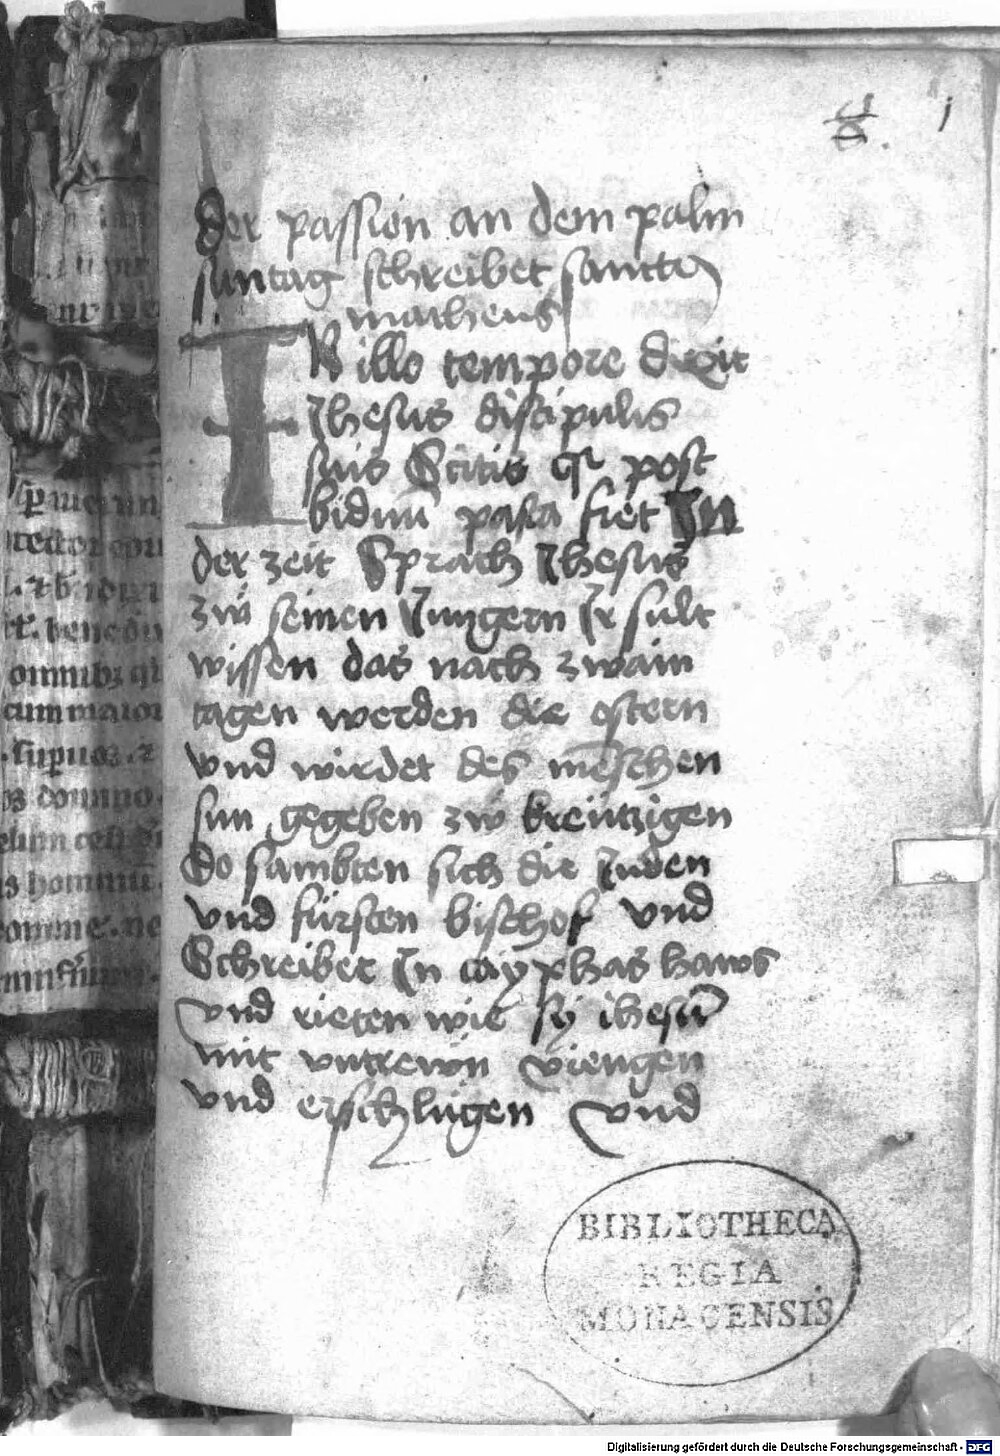 1
der passion an dem palm
suntag schreibet sancte
matheus
IN illo tempore dixit
Jhesus discipulis
suis Scitis qr post
biduū pasca fiet In
der zeit Sprach Jhesus
zw seinen Jungern Ir sult
wissen das nach zwain
tagen werden die ostern
vnd wirdet des mēschen
sun gegeben zw kreützigen
do sambten sich die Juden
vnd fürsten bischof vnd
Schreiber In cayphas haws
vnd rieten wie sy ihesū
mit vntrewn viengen
vnd erschlügen vnd
BIBLIOTHECA
REGIA
MONACENSIS
Digitalisierung gefördert durch die Deutsche Forschungsgemeinschaft - DFG